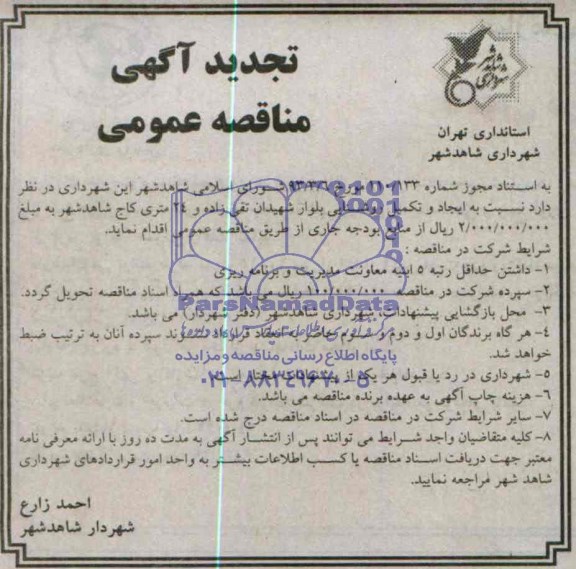 تجدید آگهی
مناقصه عمومی
شهرداری شاهدشهر
استانداری تهران
شهرداری شاهدشهر
به استناد مجوز شماره مورخ ۹۳/۳/۶ شورای اسلامی شاهدشهر این شهرداری در نظر
دارد نسبت به ایجاد و تکمیل روشنایی بلوار شهیدان تقی زاده و ۲۴ متری کاج شاهدشهر به مبلغ
۲/۰۰۰/۰۰۰/۰۰۰ ریال از منابع بودجه جاری از طریق مناقصه عمومی اقدام نماید.
شرایط شرکت در مناقصه :
۱- داشتن حداقل رتبه ۵ ابنیه معاونت مدیریت و برنامه ریزی
۲- سپرده شرکت در مناقصه ۱۰۰/۰۰۰/۰۰۰ ریال می باشد که همراه اسناد مناقصه تحویل گردد.
ParsNamadData
۳- محل بازگشایی پیشنهادات، شهرداری شاهدشهر (دفتر شهردار) می باشد.
۴- هر گاه برندگان اول و دوم و سوم حاضر به انعقاد قرارداد نشوند سپرده آنان به ترتیب ضبط
خواهد شد.
پایگاه اطلاع رسانی مناقصه و مزایده
۵- شهرداری در رد یا قبول هر یک از پیشنهادات مختار است.
۰۲۱-۸۸۳۴۹۶۷۰-۵
۶- هزینه چاپ آگهی به عهده برنده مناقصه می باشد.
۷- سایر شرایط شرکت در مناقصه در اسناد مناقصه درج شده است.
۸- کلیه متقاضیان واجد شرایط می توانند پس از انتشار آگهی به مدت ده روز با ارائه معرفی نامه
معتبر جهت دریافت اسناد مناقصه یا کسب اطلاعات بیشتر به واحد امور قراردادهای شهرداری
شاهد شهر مراجعه نمایید.
احمد زارع
شهردار شاهدشهر